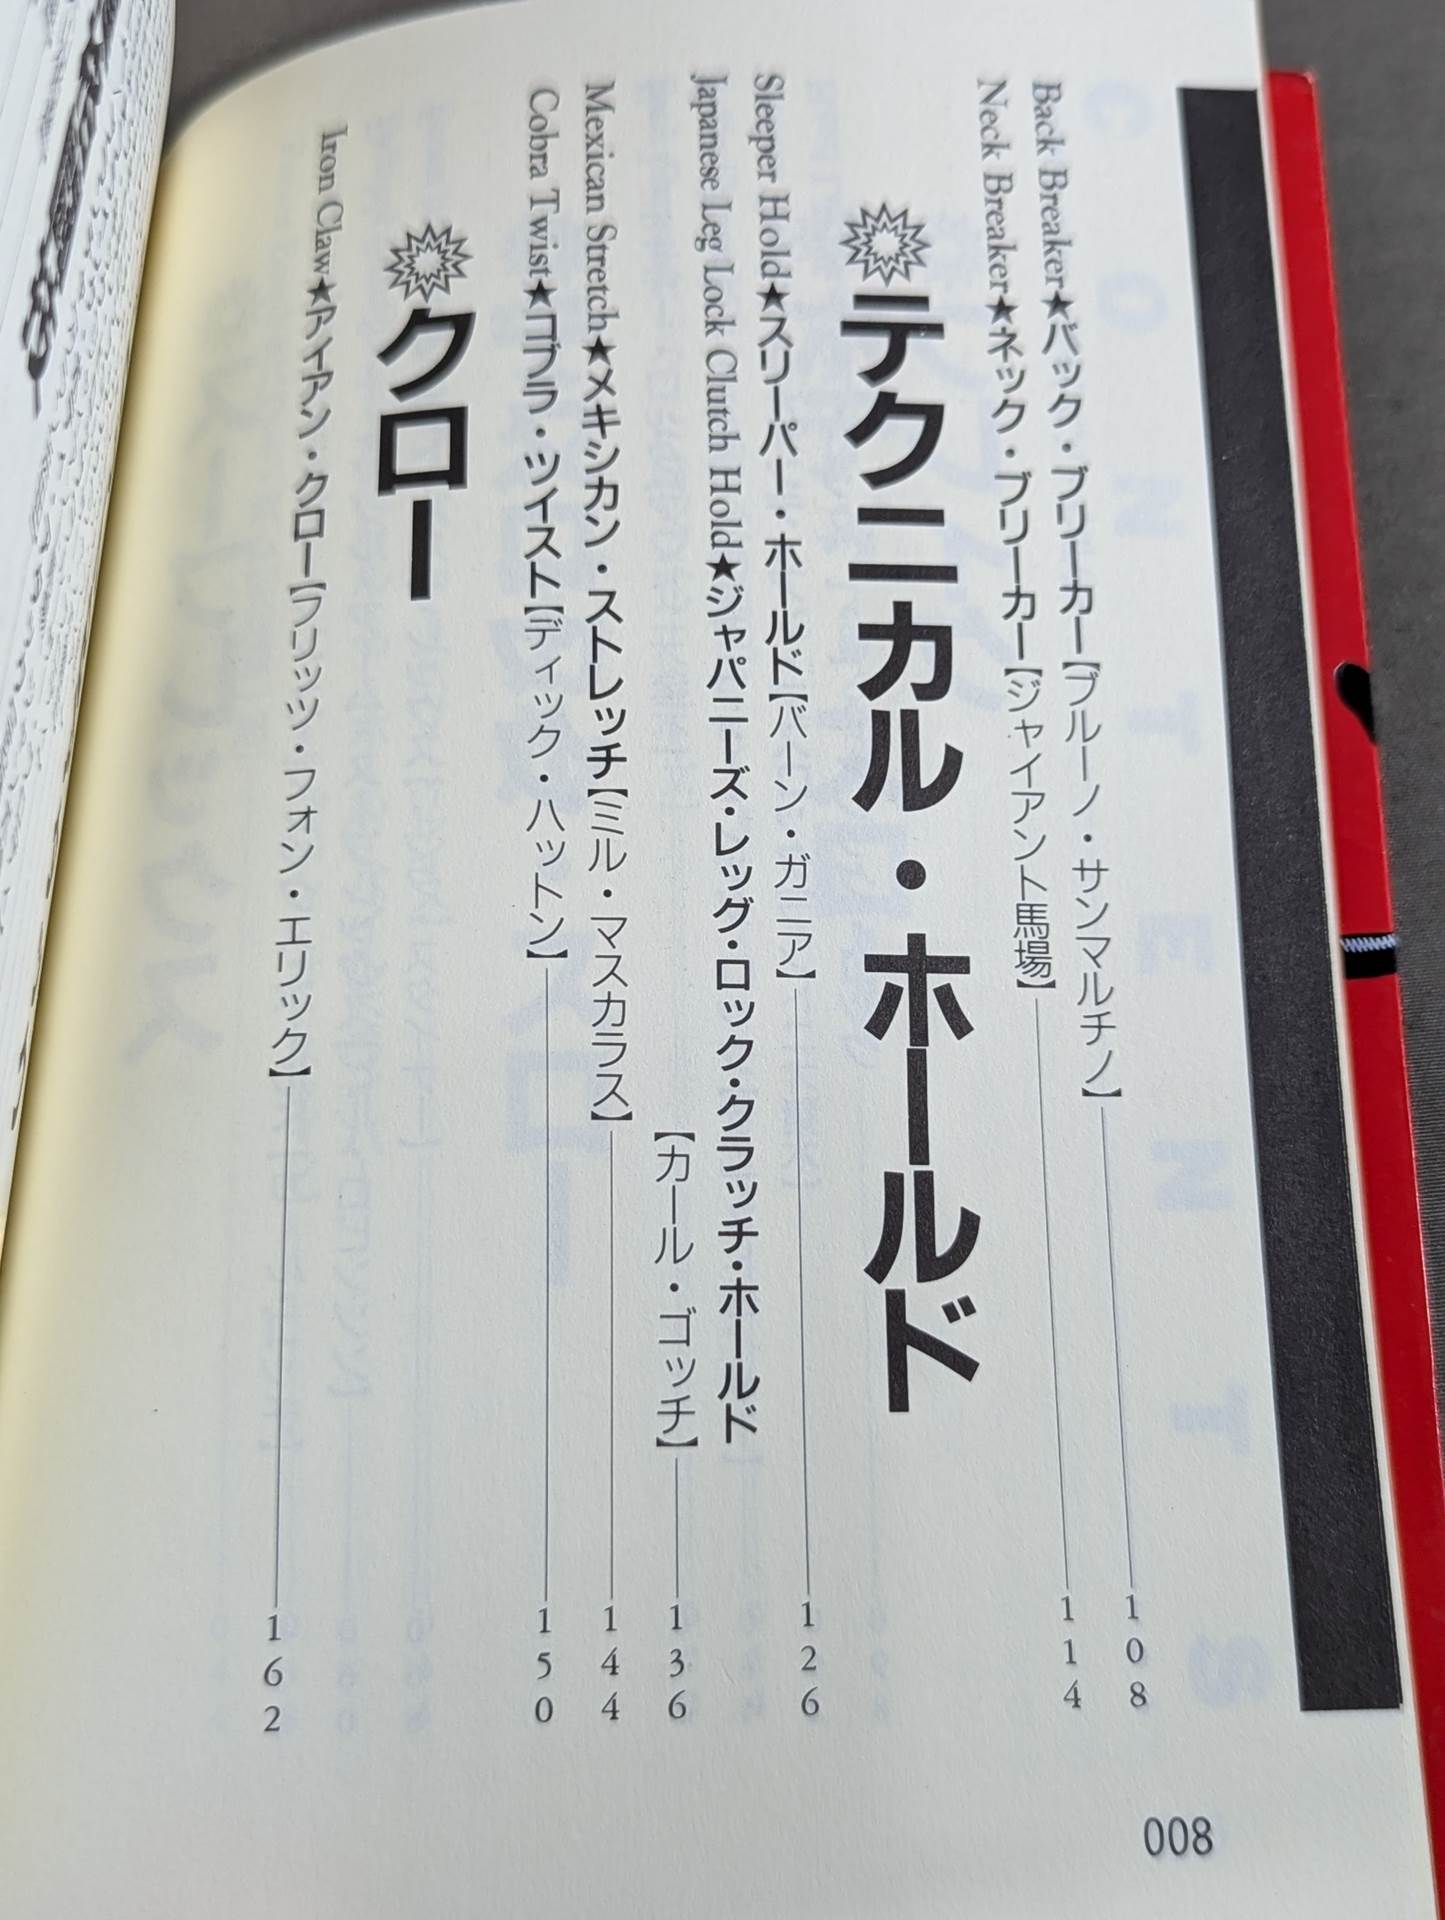 Back Breaker★バック・ブリーカー【ブルーノ・サンマルチノ】108
Neck Breaker★ネック・ブリーカー【ジャイアント馬場】114
テクニカル・ホールド
Sleeper Hold★スリーパー・ホールド【バーン・ガニア】126
Japanese Leg Lock Clutch Hold★ジャパニーズ・レッグ・ロック・クラッチ・ホールド
【カール・ゴッチ】136
Mexican Stretch★メキシカン・ストレッチ【ミル・マスカラス】144
Cobra Twist★コブラ・ツイスト【ディック・ハットン】150
クロー
Iron Claw★アイアン・クロー【フリッツ・フォン・エリック】162
008